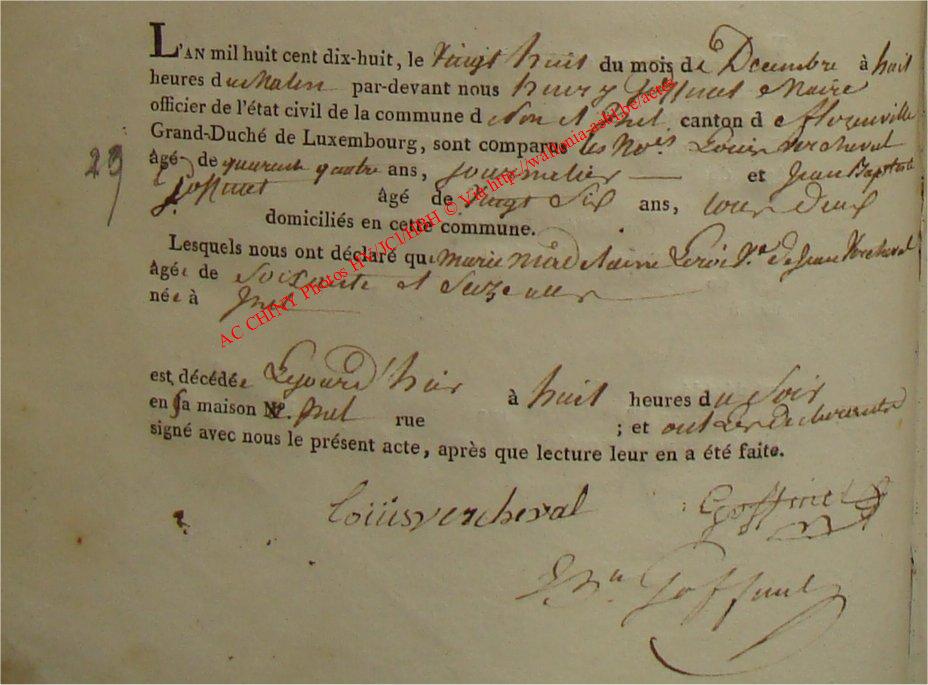 L'AN mil huit cent dix-huit, le Vingt huit du mois de Decembre à huit
heures du Matin par-devant nous henry Goffinet Maire
officier de l'état civil de la commune d canton d e florenville
Grand-Duché de Luxembourg, sont comparus les No.s Louis Vercheval
âgé de quarente quatre ans, journalier et Jean Baptiste
Goffinet âgé de Vingt Six ans, tous deux
domiciliés en cette commune.
Lesquels nous ont déclaré que Marie Leroi V.e de Jean Vercheval
âgée de Soixante et Seize ans
née à
est décédée Lejourd'hier à huit heures du Soir
en sa maison N°. rue ; et ont Les declarants
signé avec nous le présent acte, après que lecture leur en a été faite.
23
Loüisvercheval Goffinet
Goffinet
AC CHINY Photos HH/JCl/HBH © Via http://wallonia-asbl.be/actes